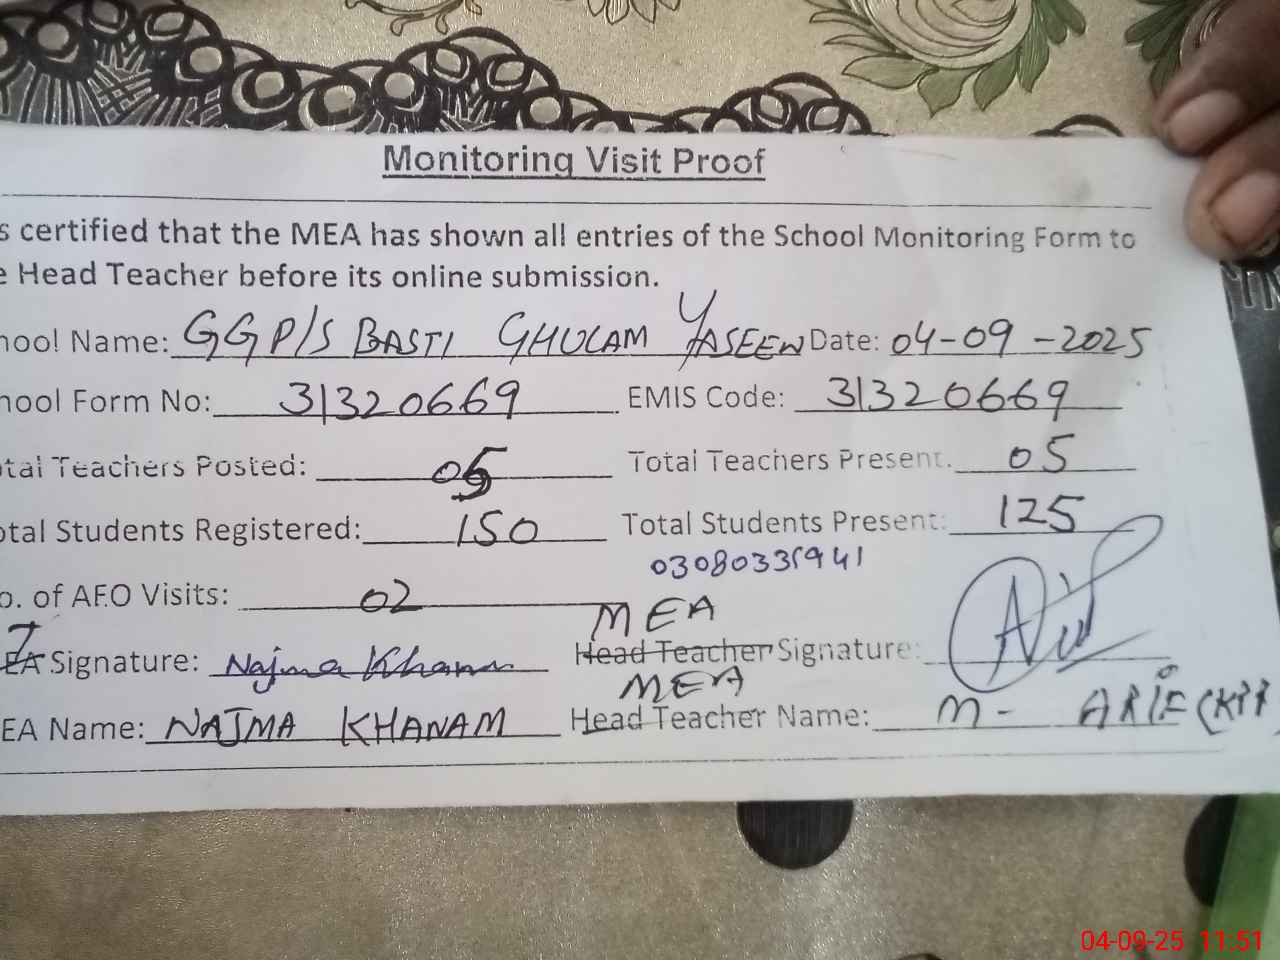 Monitoring Visit Proof
s certified that the MEA has shown all entries of the School Monitoring Form to
e Head Teacher before its online submission.
hool Name: GGP/S BASTI GHULAM YASEEN Date: 04-09-2025
hool Form No: 31320669 EMIS Code: 31320669
tal Teachers Posted: 05 Total Teachers Present. 05
otal Students Registered: 150 Total Students Present: 125
03080335941
o. of AEO Visits: 02
MEA
EA Signature: Najma Khanam Head Teacher Signature:
MEA
EA Name: NAJMA KHANAM Head Teacher Name: M-
04-09-25 11:51